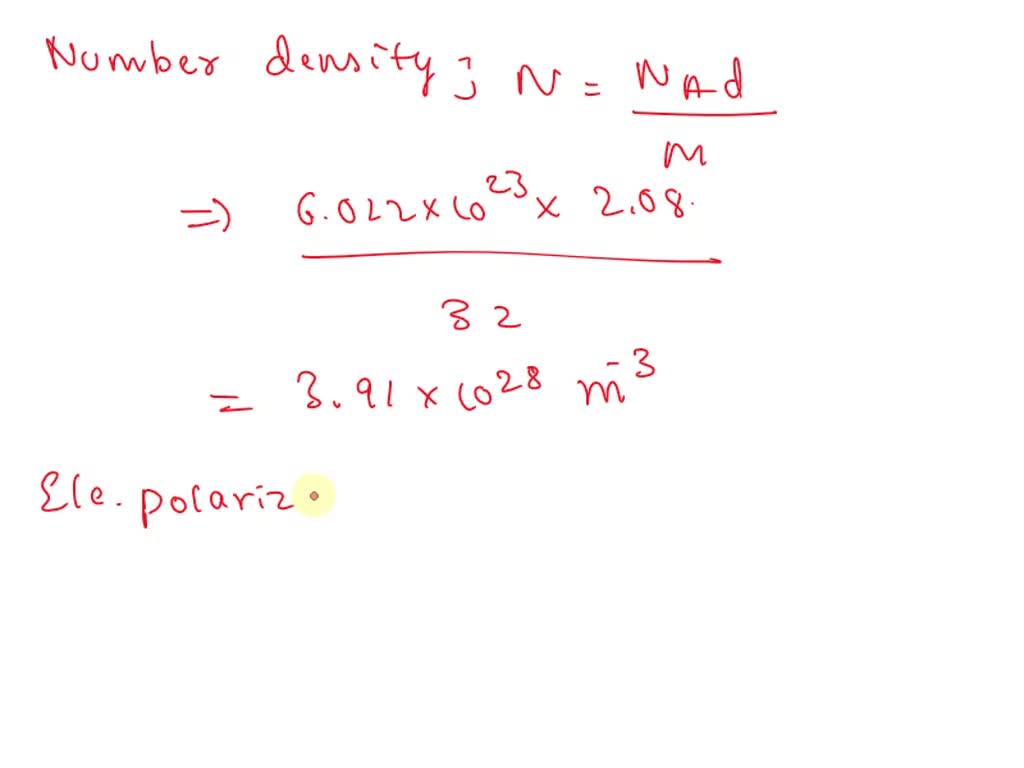 Number density; N = N_A d / M
=> 6.022 × 10^23 × 2.08. / 32
= 3.91 × 10^28 m^-3
Ele. polariz